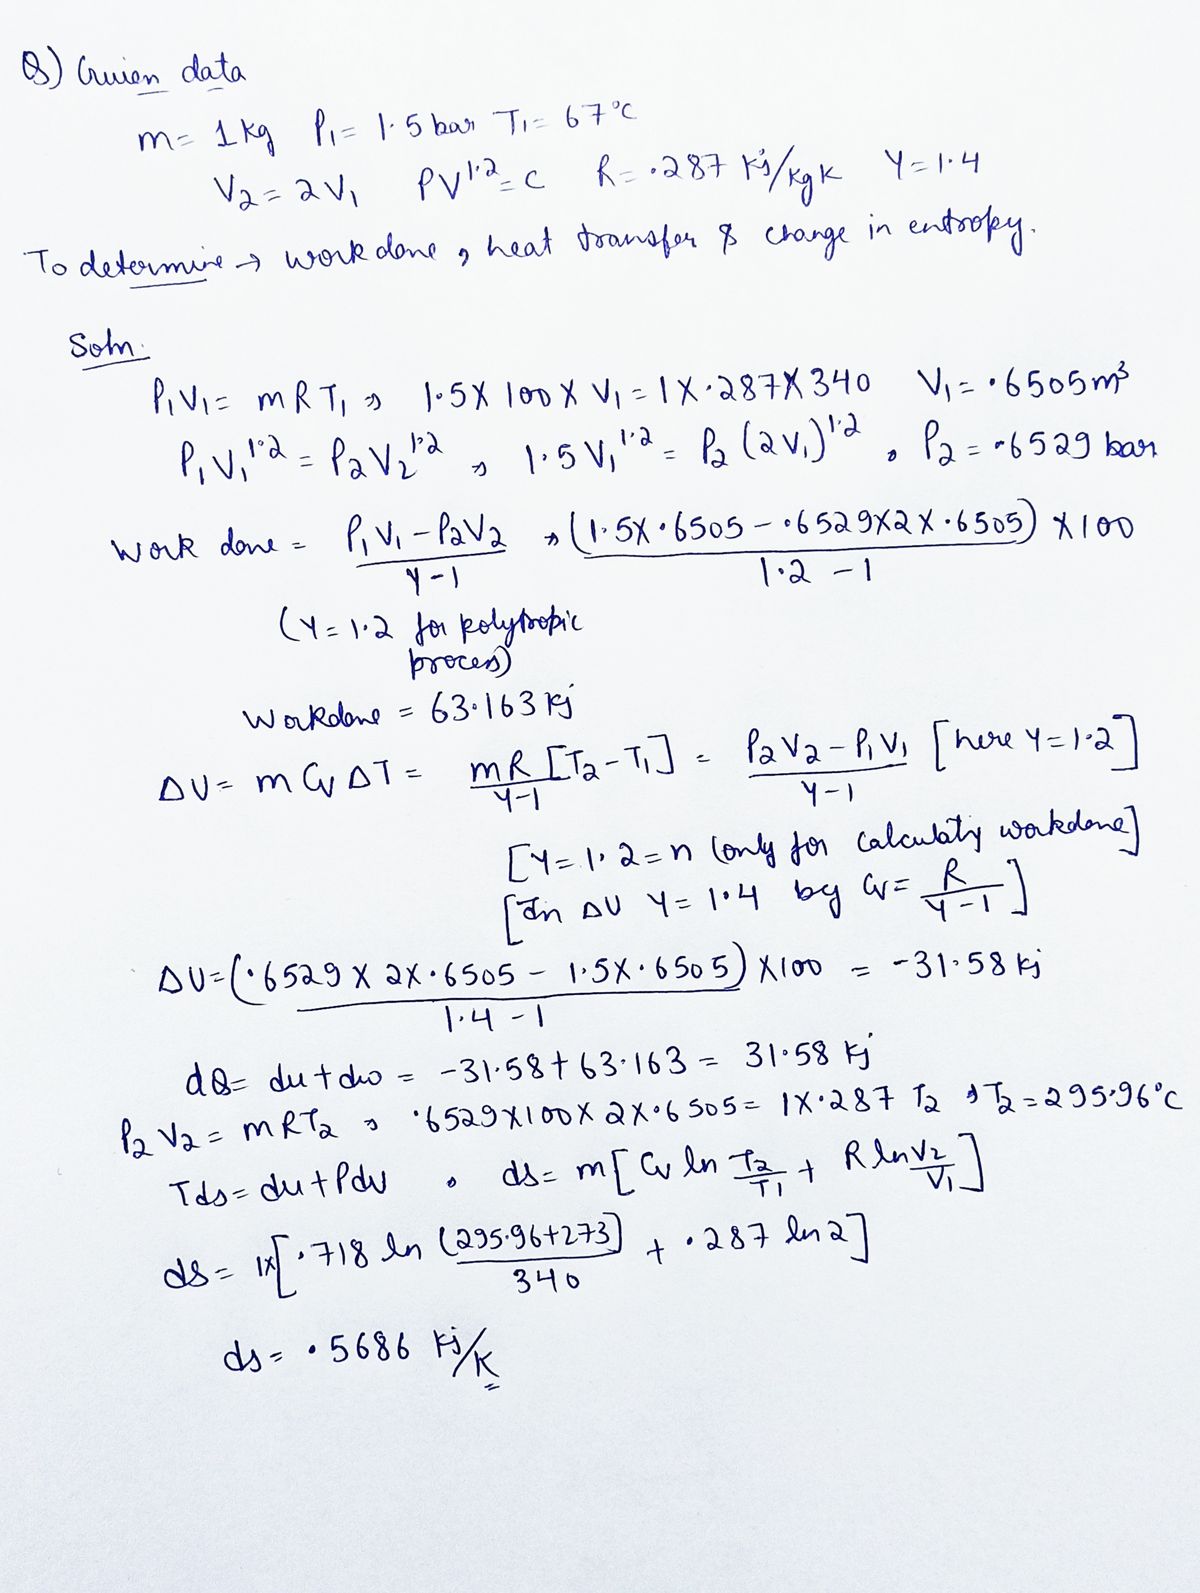 Q) Guien data
m= 1kg P₁= 1.5 bar T₁= 67°C
V₂= 2V₁ PV^1.2=C R= .287 kj/kgk Y=1.4
To determine → work done, heat transfer & change in entropy.
Soln.
P₁V₁= mRT₁ ⇒ 1.5X 100 X V₁ = 1X.287X340 V₁= .6505m³
P₁V₁^1.2 = P₂V₂^1.2 ⇒ 1.5V₁^1.2 = P₂ (2V₁)^1.2, P₂ = .6529 bar
Work done = (P₁V₁-P₂V₂)/(Y-1) ⇒ (1.5X.6505-.6529X2X.6505)/(1.2-1) X100
(Y=1.2 for polytropic
process)
Workdone = 63.163 kj
ΔU= m Cv ΔT = mR/(Y-1) [T₂-T₁] = (P₂V₂-P₁V₁)/(Y-1) [here Y=1.2]
[Y=1.2=n (only for calculatiy workdone]
[In ΔU Y=1.4 by Cv= R/(Y-1)]
ΔU=(.6529X 2X.6505- 1.5X.6505)/(1.4-1) X100 = -31.58 kj
dQ= du+dw = -31.58+63.163= 31.58 kj
P₂V₂= mRT₂ ⇒ .6529X100X2X.6505= 1X.287 T₂ ⇒ T₂=295.96°C
Tds= du+Pdv, ds= m[Cv ln T₂/T₁ + R ln V₂/V₁]
ds= 1x[.718 ln (295.96+273)/340 + .287 ln2]
ds= .5686 kj/K